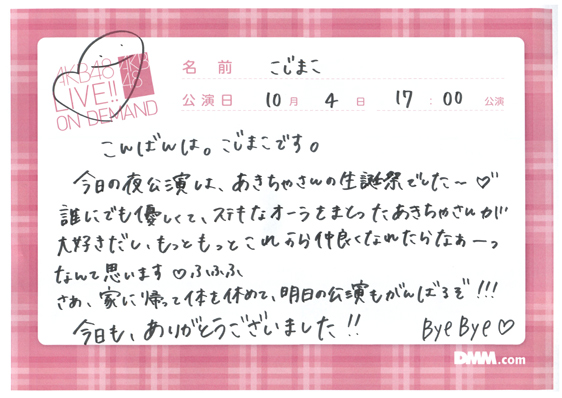 AKB48
LIVE!!
ON DEMAND
AKB
48
名前 こじまこ
公演日 10月 4日 17:00 公演
こんばんは。こじまこです。
今日の夜公演は、あきちゃさんの生誕祭でした〜♡
誰にでも優しくて、ステキなオーラをまとったあきちゃさんが
大好きだし、もっともっとこれから仲良くなれたらなぁーっ
なんて思います♡ふふふ
さぁ、家に帰って体を休めて、明日の公演もがんばるぞ!!!
今日も、ありがとうございました!!
Bye Bye♡
DMM.com